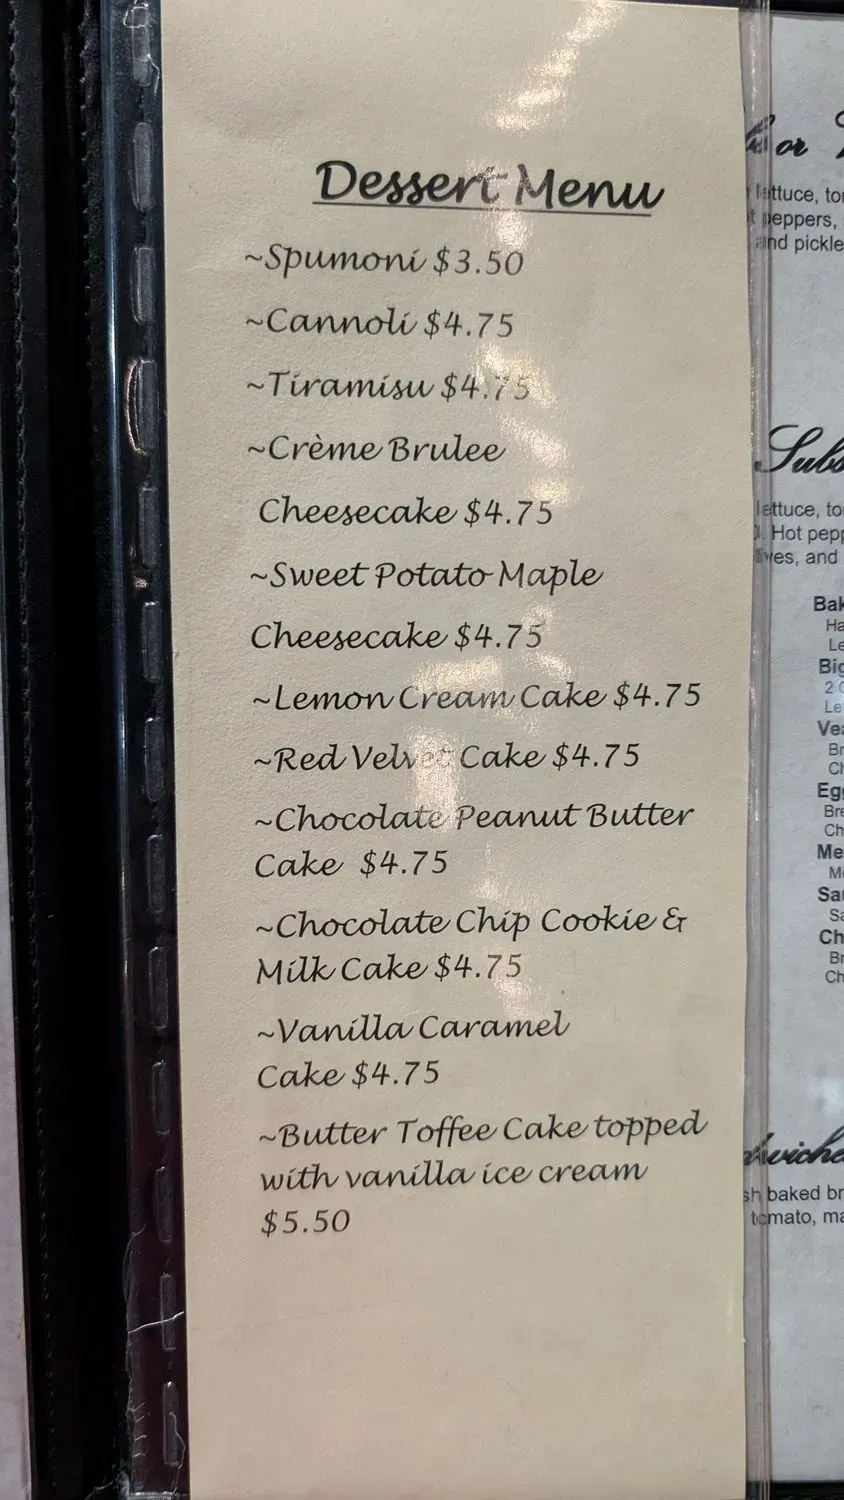 Dessert Menu
~Spumoni $3.50
~Cannoli $4.75
~Tiramisu $4.75
~Crème Brulee
Cheesecake $4.75
~Sweet Potato Maple
Cheesecake $4.75
~Lemon Cream Cake $4.75
~Red Velvet Cake $4.75
~Chocolate Peanut Butter
Cake $4.75
~Chocolate Chip Cookie &
Milk Cake $4.75
~Vanilla Caramel
Cake $4.75
~Butter Toffee Cake topped
with vanilla ice cream
$5.50
or
lettuce,
peppers,
and
Subs
lettuce,
Hot
and
2
baked
tomato,